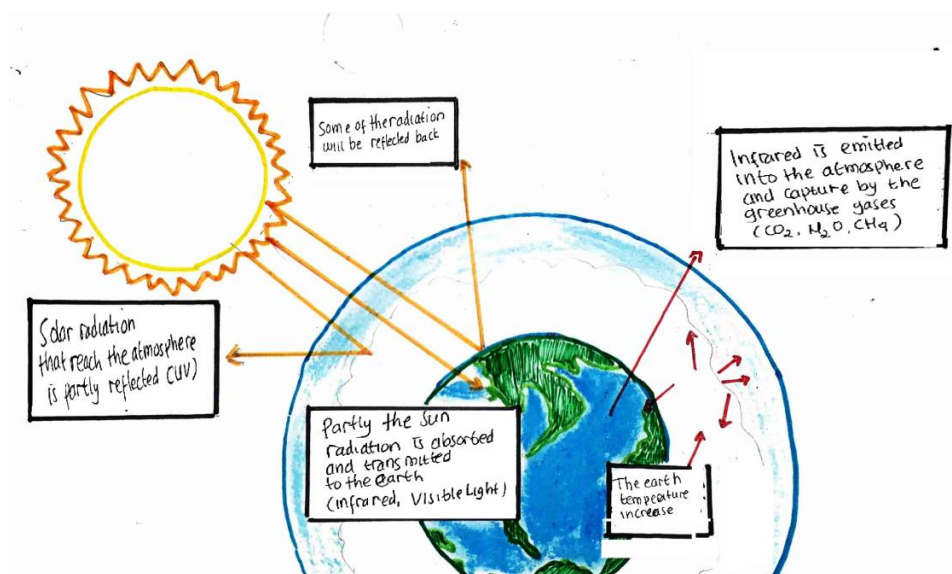 Some of the radiation
will be reflected back
Infrared is emitted
into the atmosphere
and capture by the
greenhouse gases
(CO2, N2O, CH4)
Solar radiation
that reach the atmosphere
is partly reflected (UV)
Partly the Sun
radiation is absorbed
and transmitted
to the earth
(infrared, Visible Light)
The earth
temperature
increase